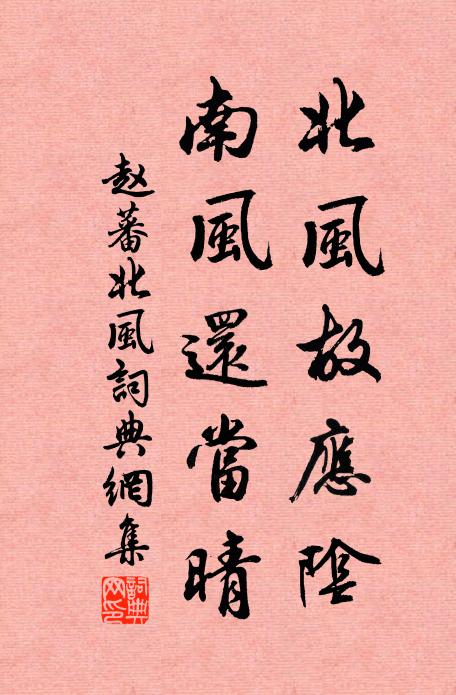 北風故應陰
南風還當晴
赵蕃北風詞典網集
詞典網印